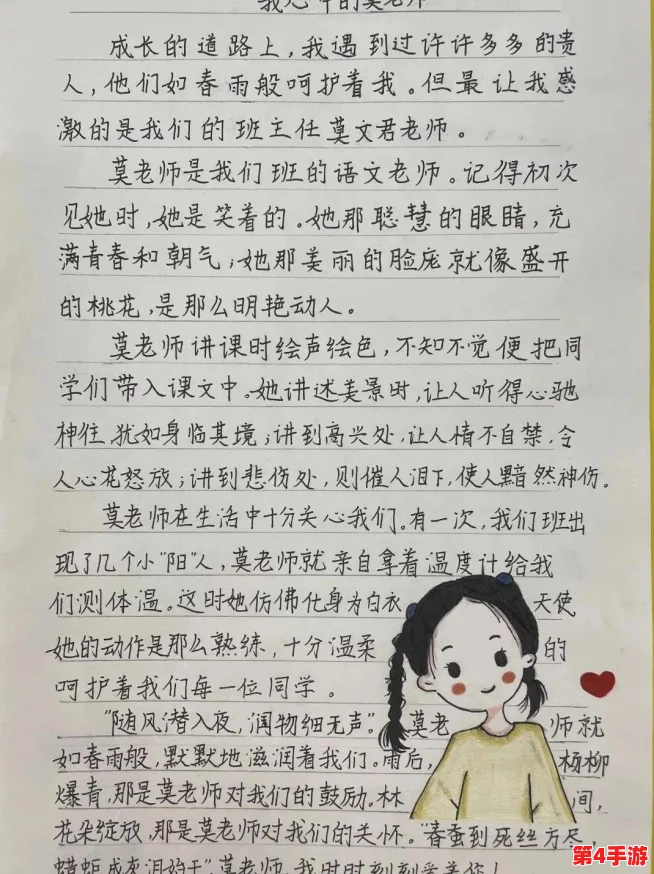 我心中的莫老师
成长的道路上，我遇到过许许多多的贵
人，他们如春雨般呵护着我。但最让我感
激的是我们的班主任莫文君老师。
莫老师是我们班的语文老师。记得初次
见她时，她是笑着的。她那聪慧的眼睛，充
满青春和朝气；她那美丽的脸庞就像盛开
的桃花，是那么明艳动人。
莫老师讲课时绘声绘色，不知不觉便把同
学们带入课文中。她讲述美景时，让人听得心驰
神往，犹如身临其境；讲到高兴处，让人情不自禁，令
人心花怒放；讲到悲伤处，则催人泪下，使人黯然神伤。
莫老师在生活中十分关心我们。有一次，我们班出
现了几个小“阳”人，莫老师就亲自拿着温度计给我
们测体温。这时她仿佛化身为白衣天使
她的动作是那么熟练，十分温柔的
呵护着我们每一位同学。
“随风潜入夜，润物细无声”。莫老师就
如春雨般，默默地滋润着我们。雨后，杨柳
爆青，那是莫老师对我们的鼓励。林间，
花朵绽放，那是莫老师对我们的关怀。“春蚕到死丝方尽，
蜡炬成灰泪始干”莫老师，我时时刻刻爱着你！
第4手游